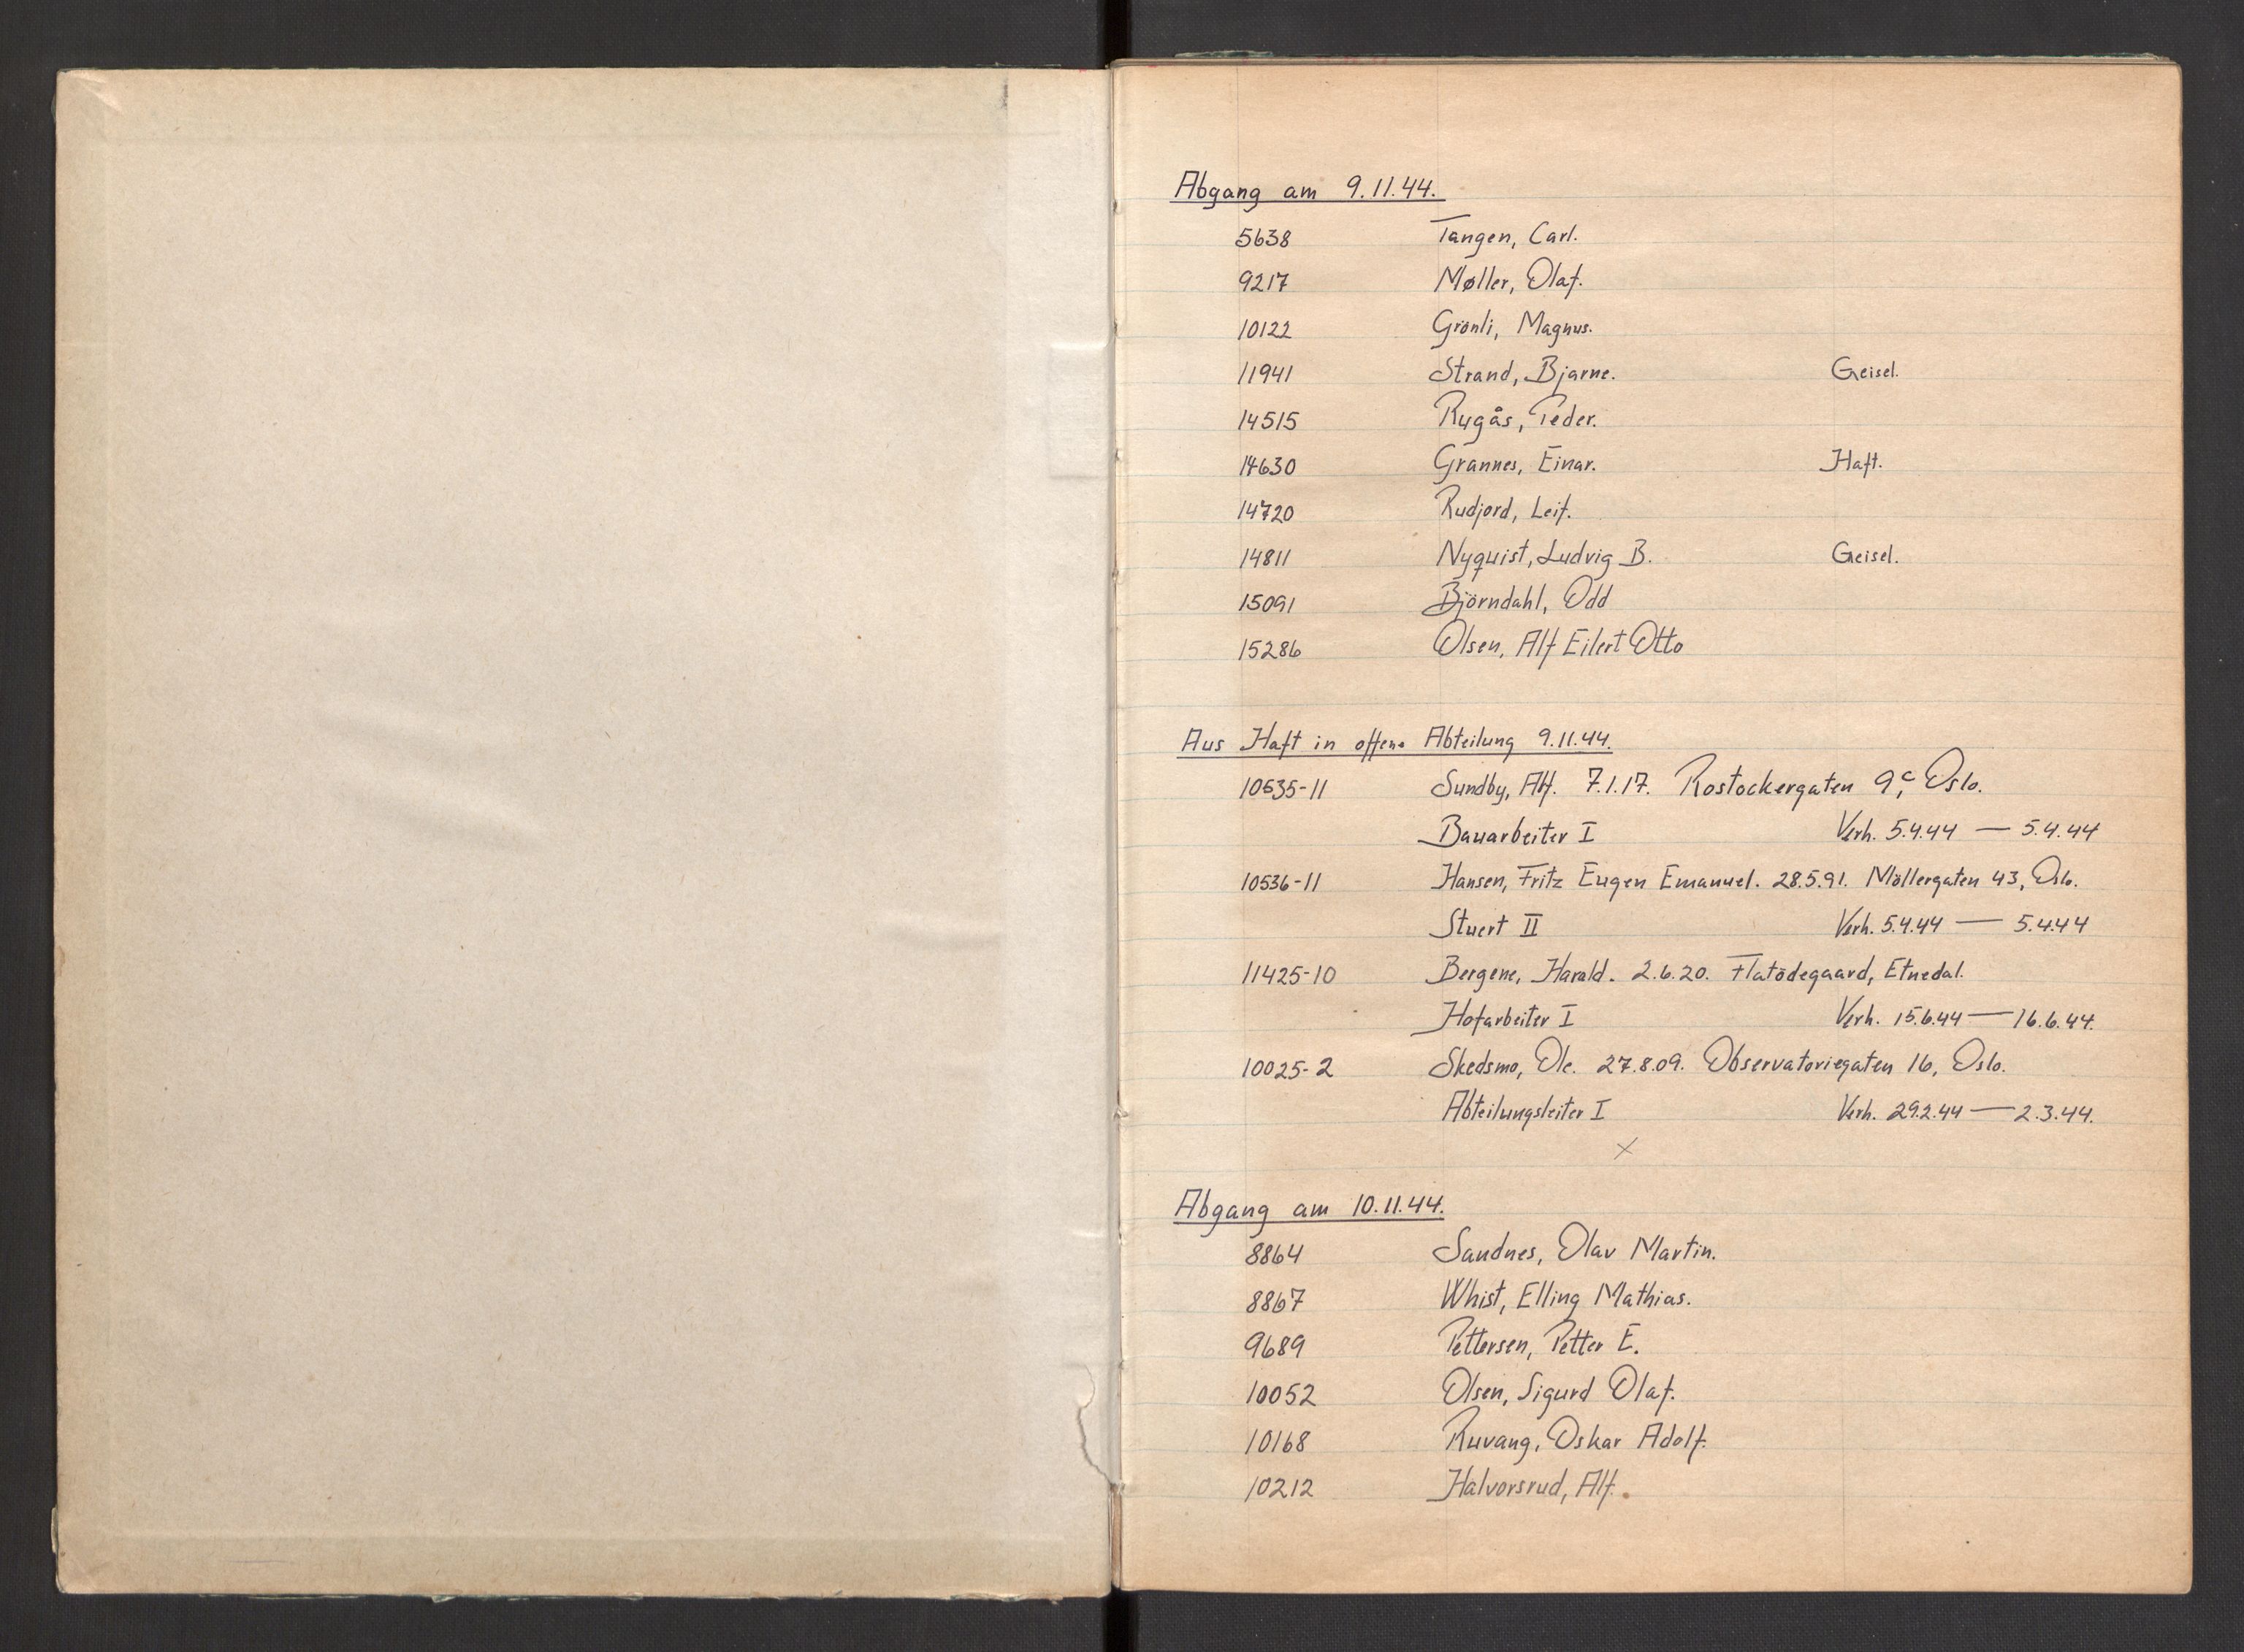 Abgang am 9.11.44.
5638 Tangen, Carl.
9217 Møller, Olaf.
10122 Grönli, Magnus.
11941 Strand, Bjarne. Geisel.
14515 Rugås, Peder.
14630 Grannes, Einar. Haft.
14720 Rudjord, Leif.
14811 Nyquist, Ludvig B. Geisel.
15091 Björndahl, Odd
15286 Olsen, Alf Eilert Otto
Aus Haft in offene Abteilung 9.11.44.
10535-11 Sundby, Alf. 7.1.17. Rostockergaten 9c, Oslo.
Bauarbeiter I Verh. 5.4.44 — 5.4.44
10536-11 Hansen, Fritz Eugen Emanuel. 28.5.91. Möllergaten 43, Oslo.
Stuert II Verh. 5.4.44 — 5.4.44
11425-10 Bergene, Harald. 2.6.20. Flatödegaard, Etnedal.
Hofarbeiter I Verh. 15.6.44 — 16.6.44.
10025-2 Skedsmo, Ole. 27.8.09. Observatoriegaten 16, Oslo.
Abteilungsleiter I Verh. 29.2.44 — 2.3.44.
x
Abgang am 10.11.44.
8864 Sandnes, Olav Martin.
8867 Whist, Elling Mathias.
9689 Pettersen, Petter E.
10052 Olsen, Sigurd Olaf.
10168 Ruvang, Oskar Adolf.
10212 Halvorsrud, Alf.